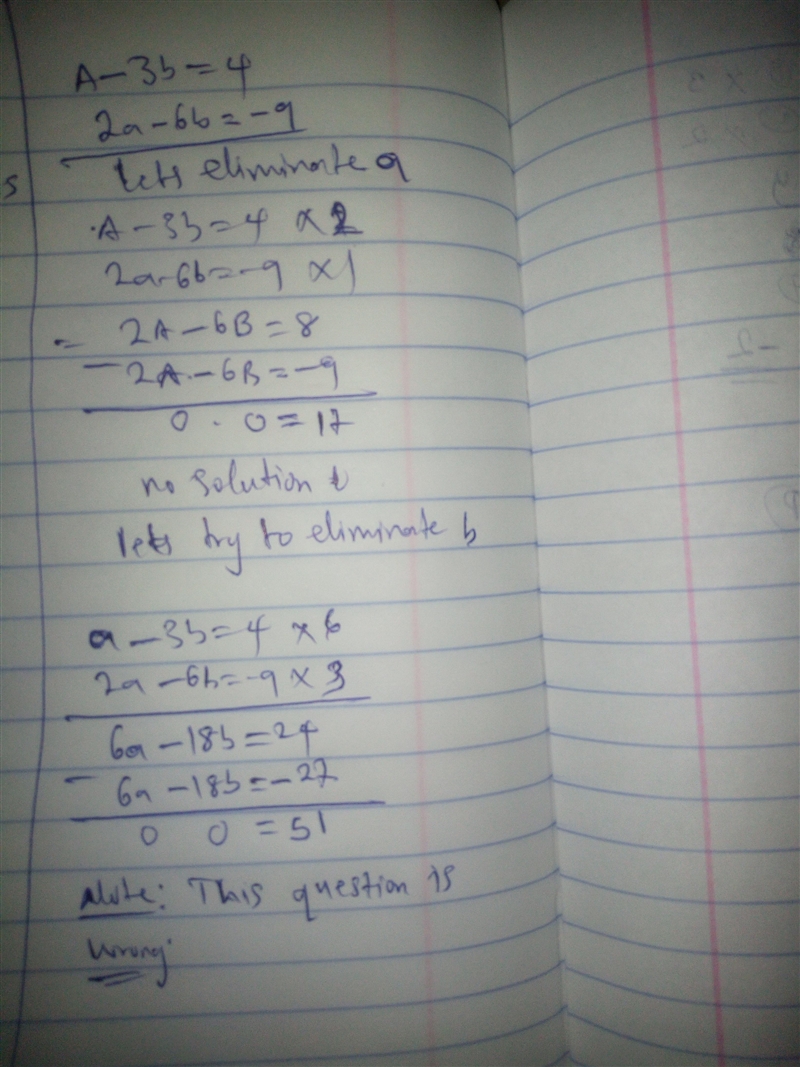 A - 3b = 4
2a - 6b = -9
lets eliminate a
A - 3b = 4 × 2
2a - 6b = -9 × 1
= 2A - 6B = 8
- 2A - 6B = -9
0 . 0 = 17
no solution
lets try to eliminate b
a - 3b = 4 × 6
2a - 6b = -9 × 3
6a - 18b = 24
- 6a - 18b = -27
0 0 = 51
Note: This question is
wrong.